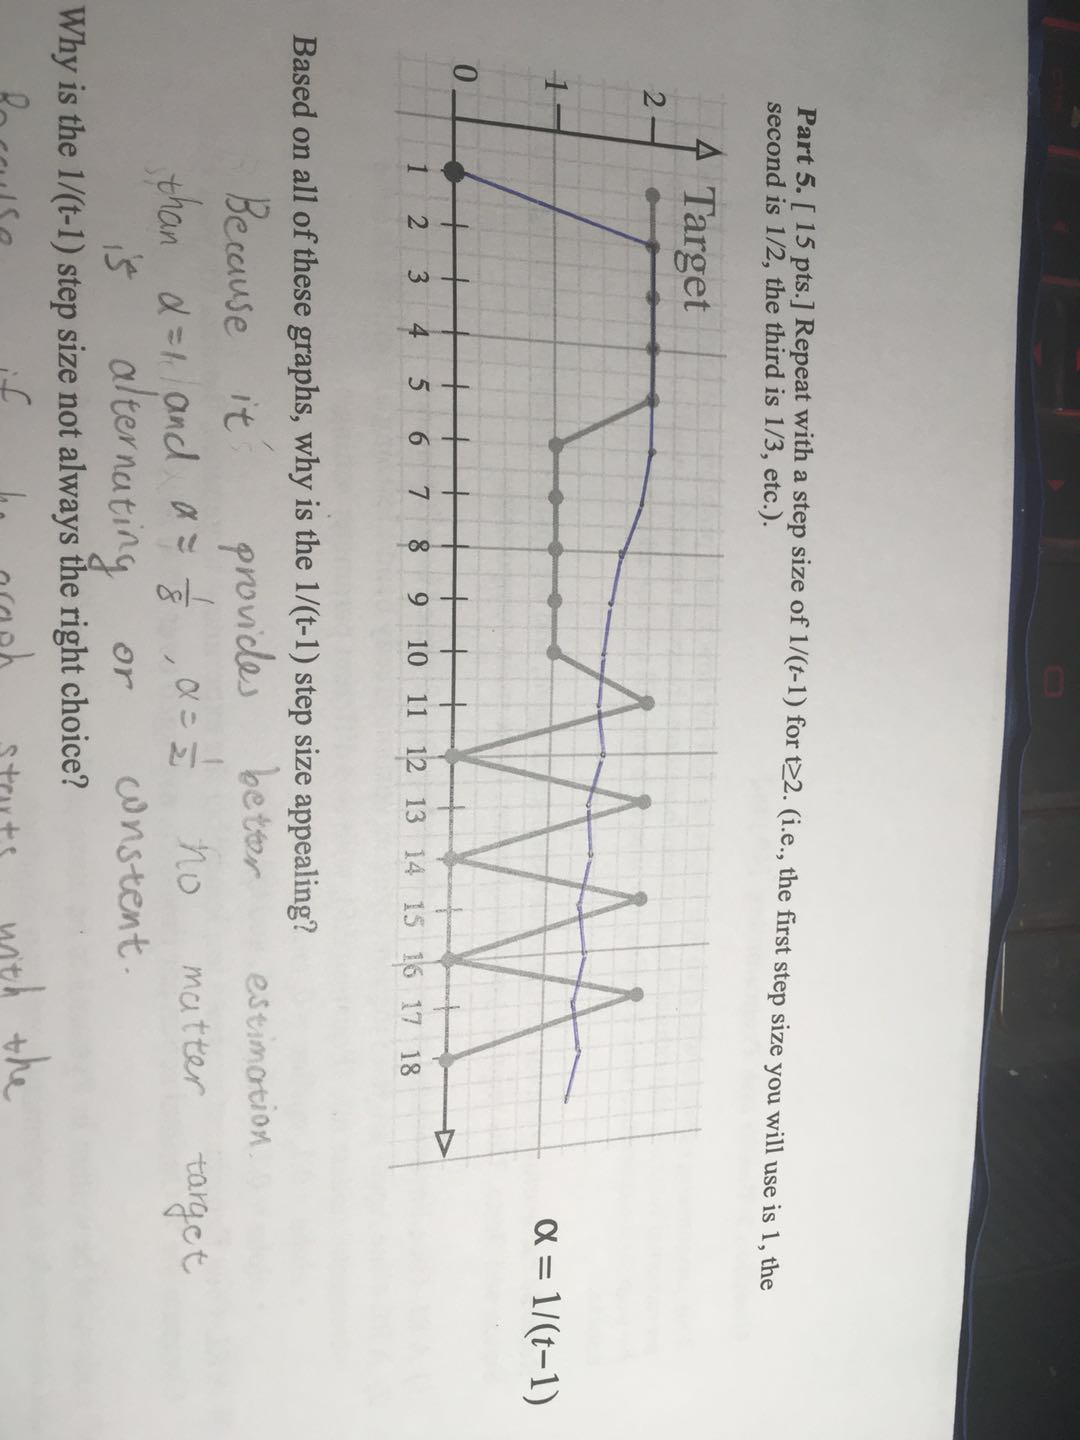 Part 5. [ 15 pts.] Repeat with a step size of 1/(t-1) for t≥2. (i.e., the first step size you will use is 1, the
second is 1/2, the third is 1/3, etc.).
Target
2
1
0
1 2 3 4 5 6 7 8 9 10 11 12 13 14 15 16 17 18
α = 1/(t−1)
Based on all of these graphs, why is the 1/(t-1) step size appealing?
Because it provides better estimation
than α=1, and α = 1/8, α = 1/2 no matter target
is alternating or constent.
Why is the 1/(t-1) step size not always the right choice?
Because if he graph starts with the